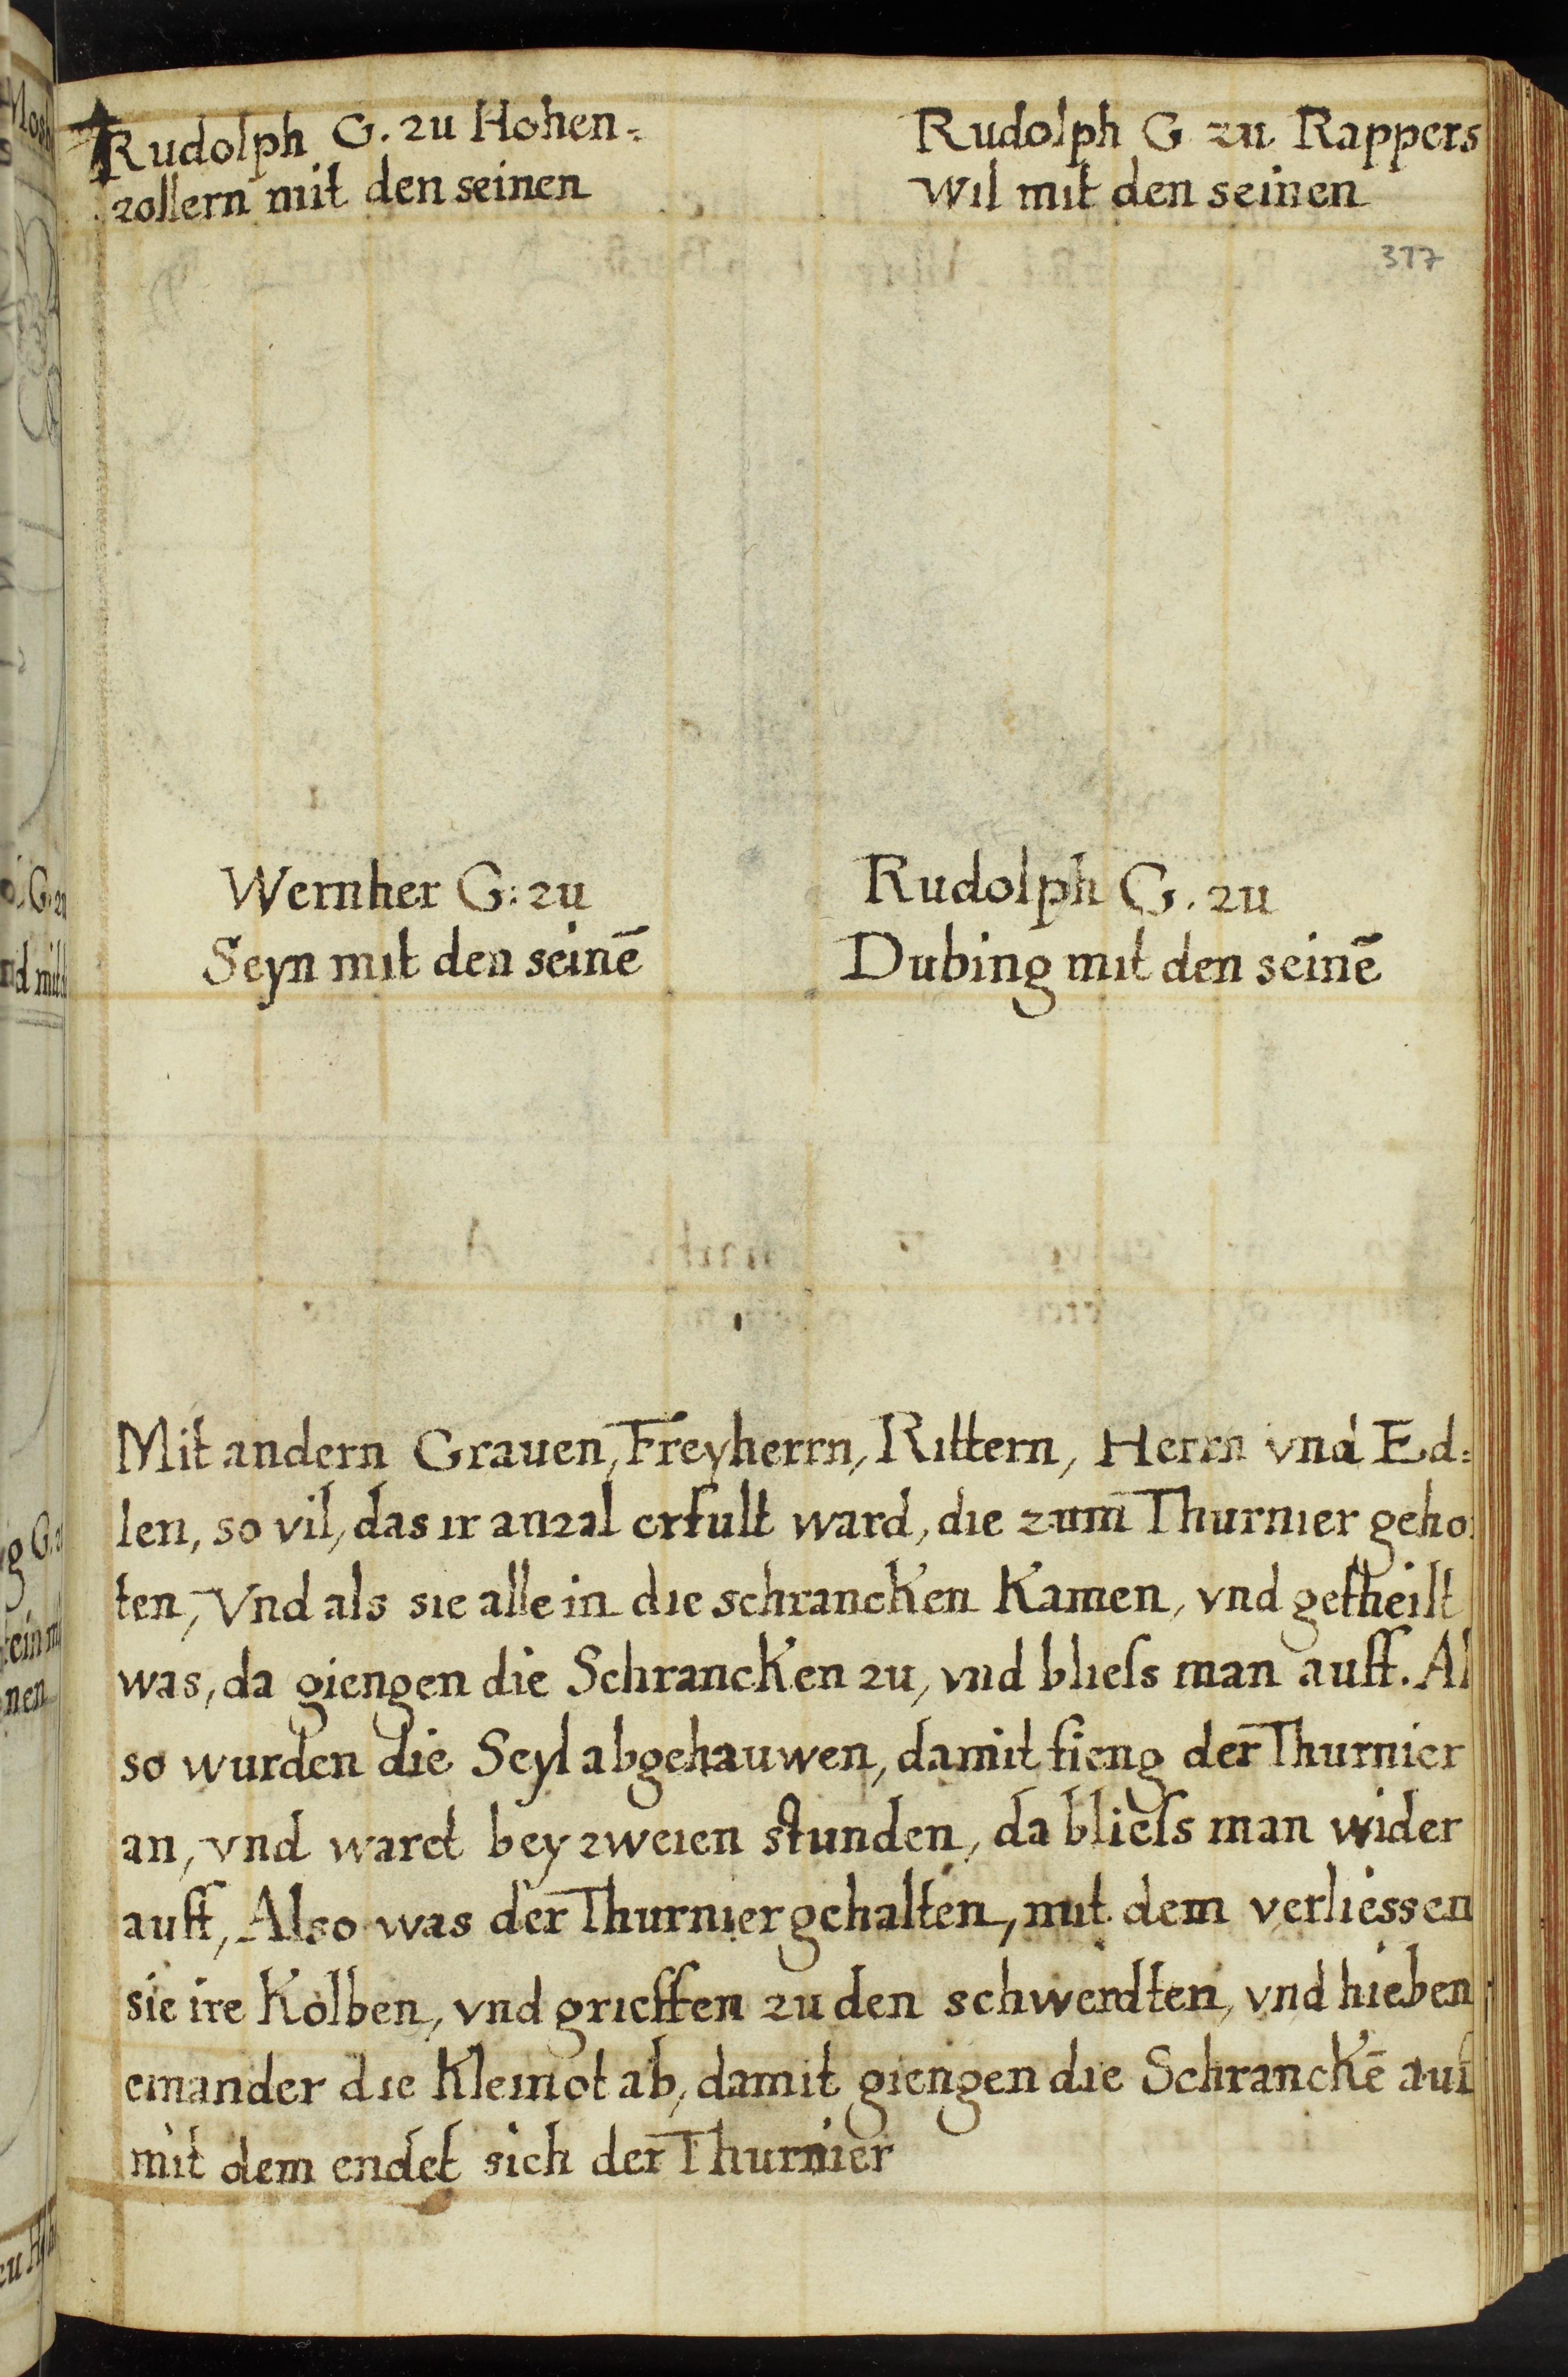 Rudolph G. zu Hohen=
zollern mit den seinen
Rudolph G zu Rappers
wil mit den seinen
317
Wernher G: zu
Seyn mit den seinē
Rudolph G. zu
Dubing mit den seinē
Mit andern Grauen, Freyherrn, Rittern, Herrn vnd Ed=
len, so vil, das ir anzal erfult ward, die zum Thurnier gehor
ten, Vnd als sie alle in die schrancken kamen, vnd getheilt
was, da giengen die Schrancken zu, vnd bliess man auff. Al
so wurden die Seyl abgehauwen, damit fieng der Thurnier
an, vnd waret bey zweien stunden, da bliess man wider
auff, Also was der Thurnier gehalten, mit dem verliessen
sie ire Kolben, vnd grieffen zu den schwerdten, vnd hieben
einander die Kleinot ab, damit giengen die Schranckē auf
mit dem endet sich der Thurnier